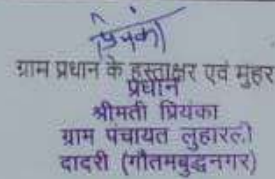 प्रियंका
ग्राम प्रधान के हस्ताक्षर एवं मुहर
प्रधान
श्रीमती प्रियंका
ग्राम पंचायत लुहारली
दादरी (गौतमबुद्धनगर)